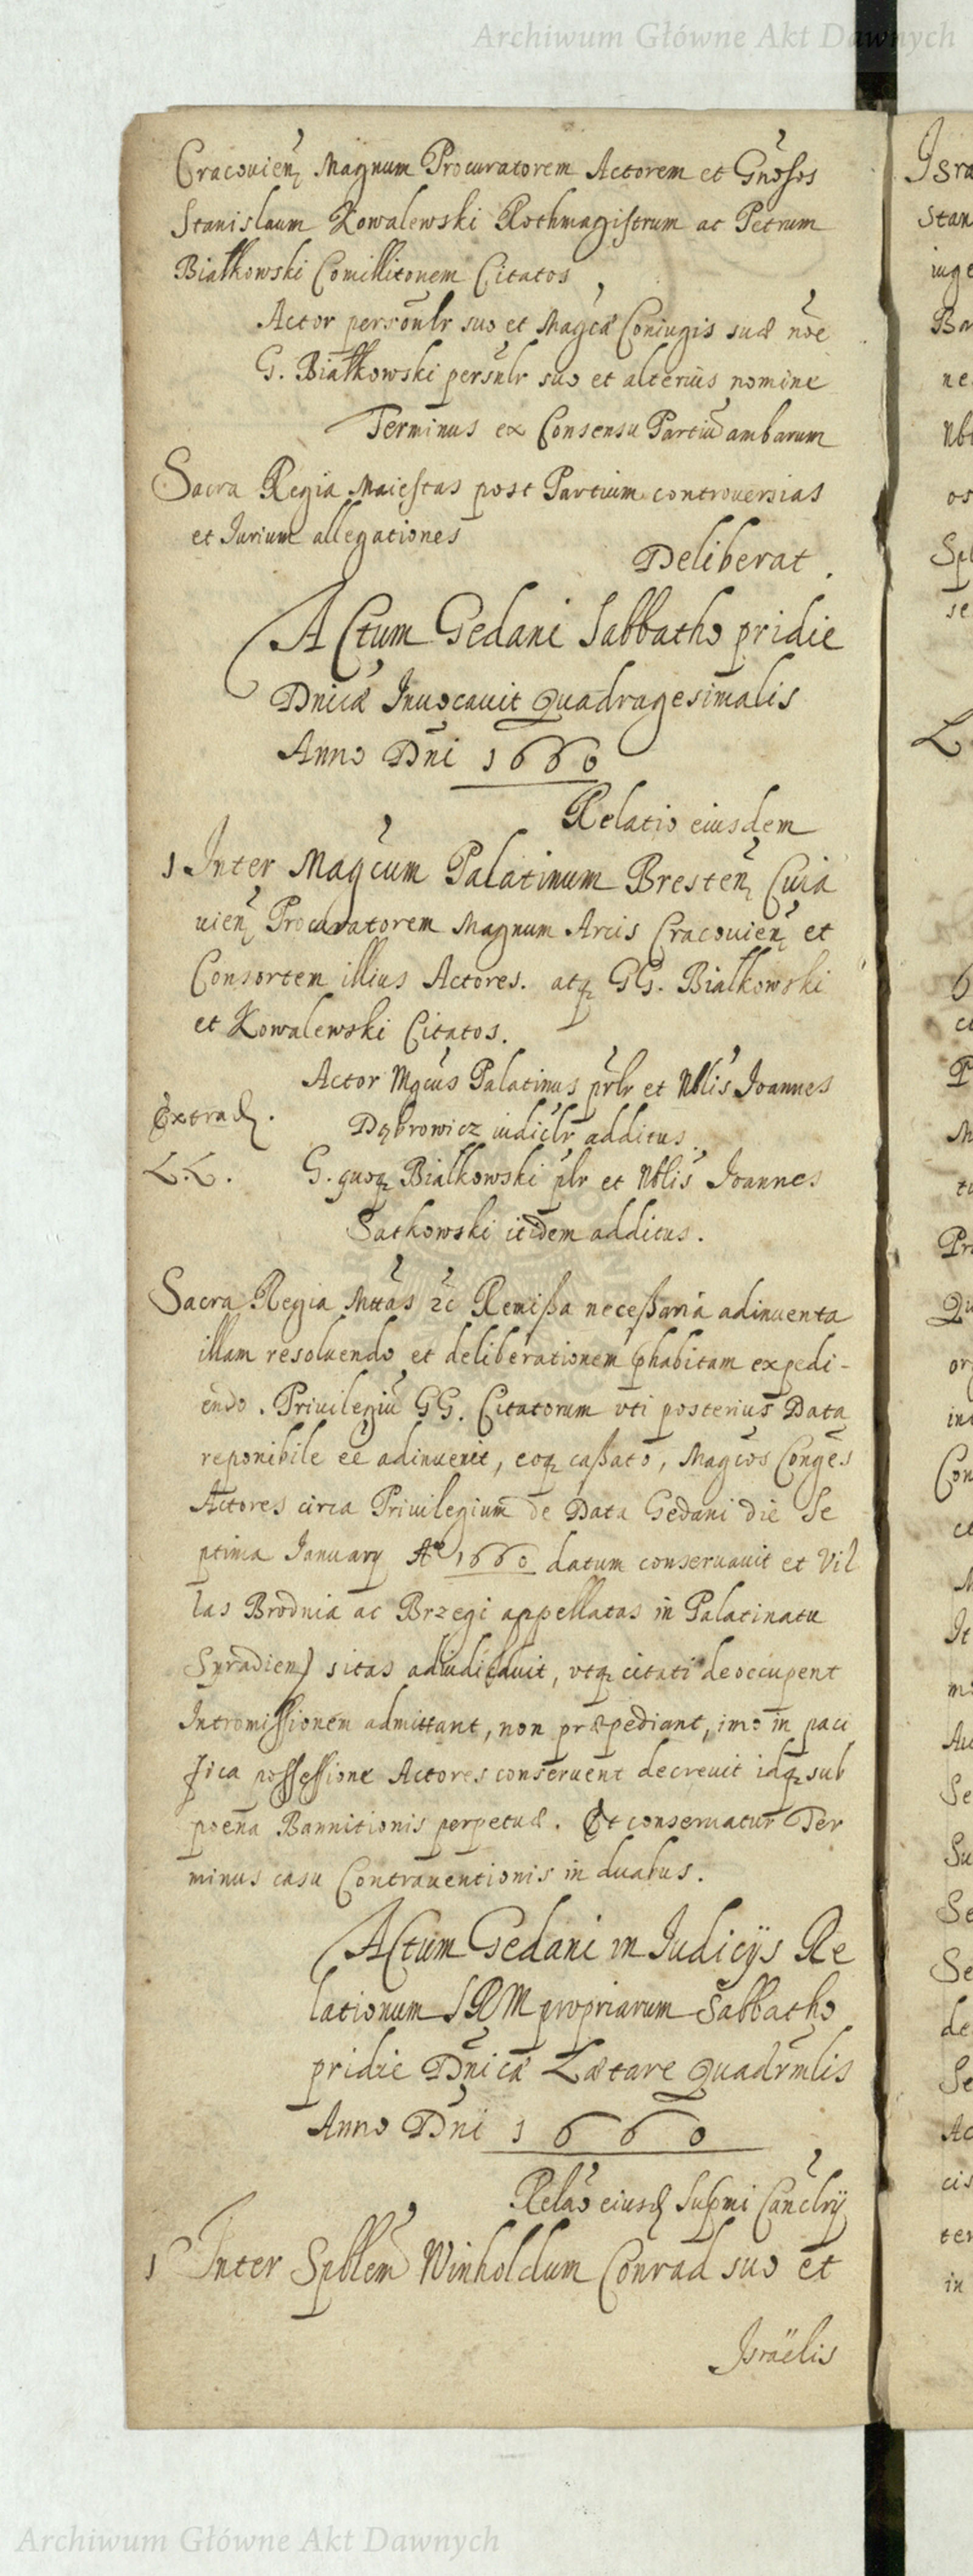 Archiwum Główne Akt Dawnych
Cracovien. Magnum Procuratorem Actorem et Gnosos
Stanislaum Kowalewski Rothmagistrum ac Petrum
Białkowski Comillitonem Citatos
Actor personlr suo et Magcæ Coniugis suæ nõe
G. Białkowski persnlr suo et alterius nomine
Terminus ex Consensu Partiũ ambarum
Sacra Regia Maiestas post Partium controversias
et Iurium allegationes
Deliberat.
Actum Gedani Sabbatho pridie
Dnicæ Invocavit Quadragesimalis
Anno Dni 1660
Relatio eiusdem
1 Inter Magcum Palatinum Bresten. Cuia
vien. Procuratorem Magnum Arcis Cracovien. et
Consortem illius Actores. atq GG. Białkowski
et Kowalewski Citatos.
Actor Mgcus Palatinus prlr et Nblis Joannes
Dąbrowicz iudiclr additus
Extrad.
L.L.
G. quoq Białkowski plr et Nblis Joannes
Satkowski itidem additus.
Sacra Regia Mttas &c Remissa necessaria adinventa
illam resolvendo et deliberationem phabitam expedi-
endo. Privilegiũ GG. Citatorum uti posterius Data
reponibile eẽ adinvenit, eoq cassato, Magcos Conges
Actores circa Privilegium de Data Gedani die Se
ptima January Ao 1660 datum conservavit et Vil
las Brodnia ac Brzegi appellatas in Palatinatu
Syradien sitas adiudicavit, utq citati deoccupent
Intromissionem admittant, non præpediant, imo in paci
fica possessione Actores conservent decrevit idq sub
poena Bannitionis perpetuæ. Et conservatur Ter
minus casu Contraventionis in duabus.
Actum Gedani in Judicijs Re
lationum SRM propriarum Sabbatho
pridie Dnicæ Lætare Quadrmlis
Anno Dni 1660
Relao eiusd Supmi Canclrij
1 Inter Spblem Winholdum Conrad suo et
Israëlis
Archiwum Główne Akt Dawnych